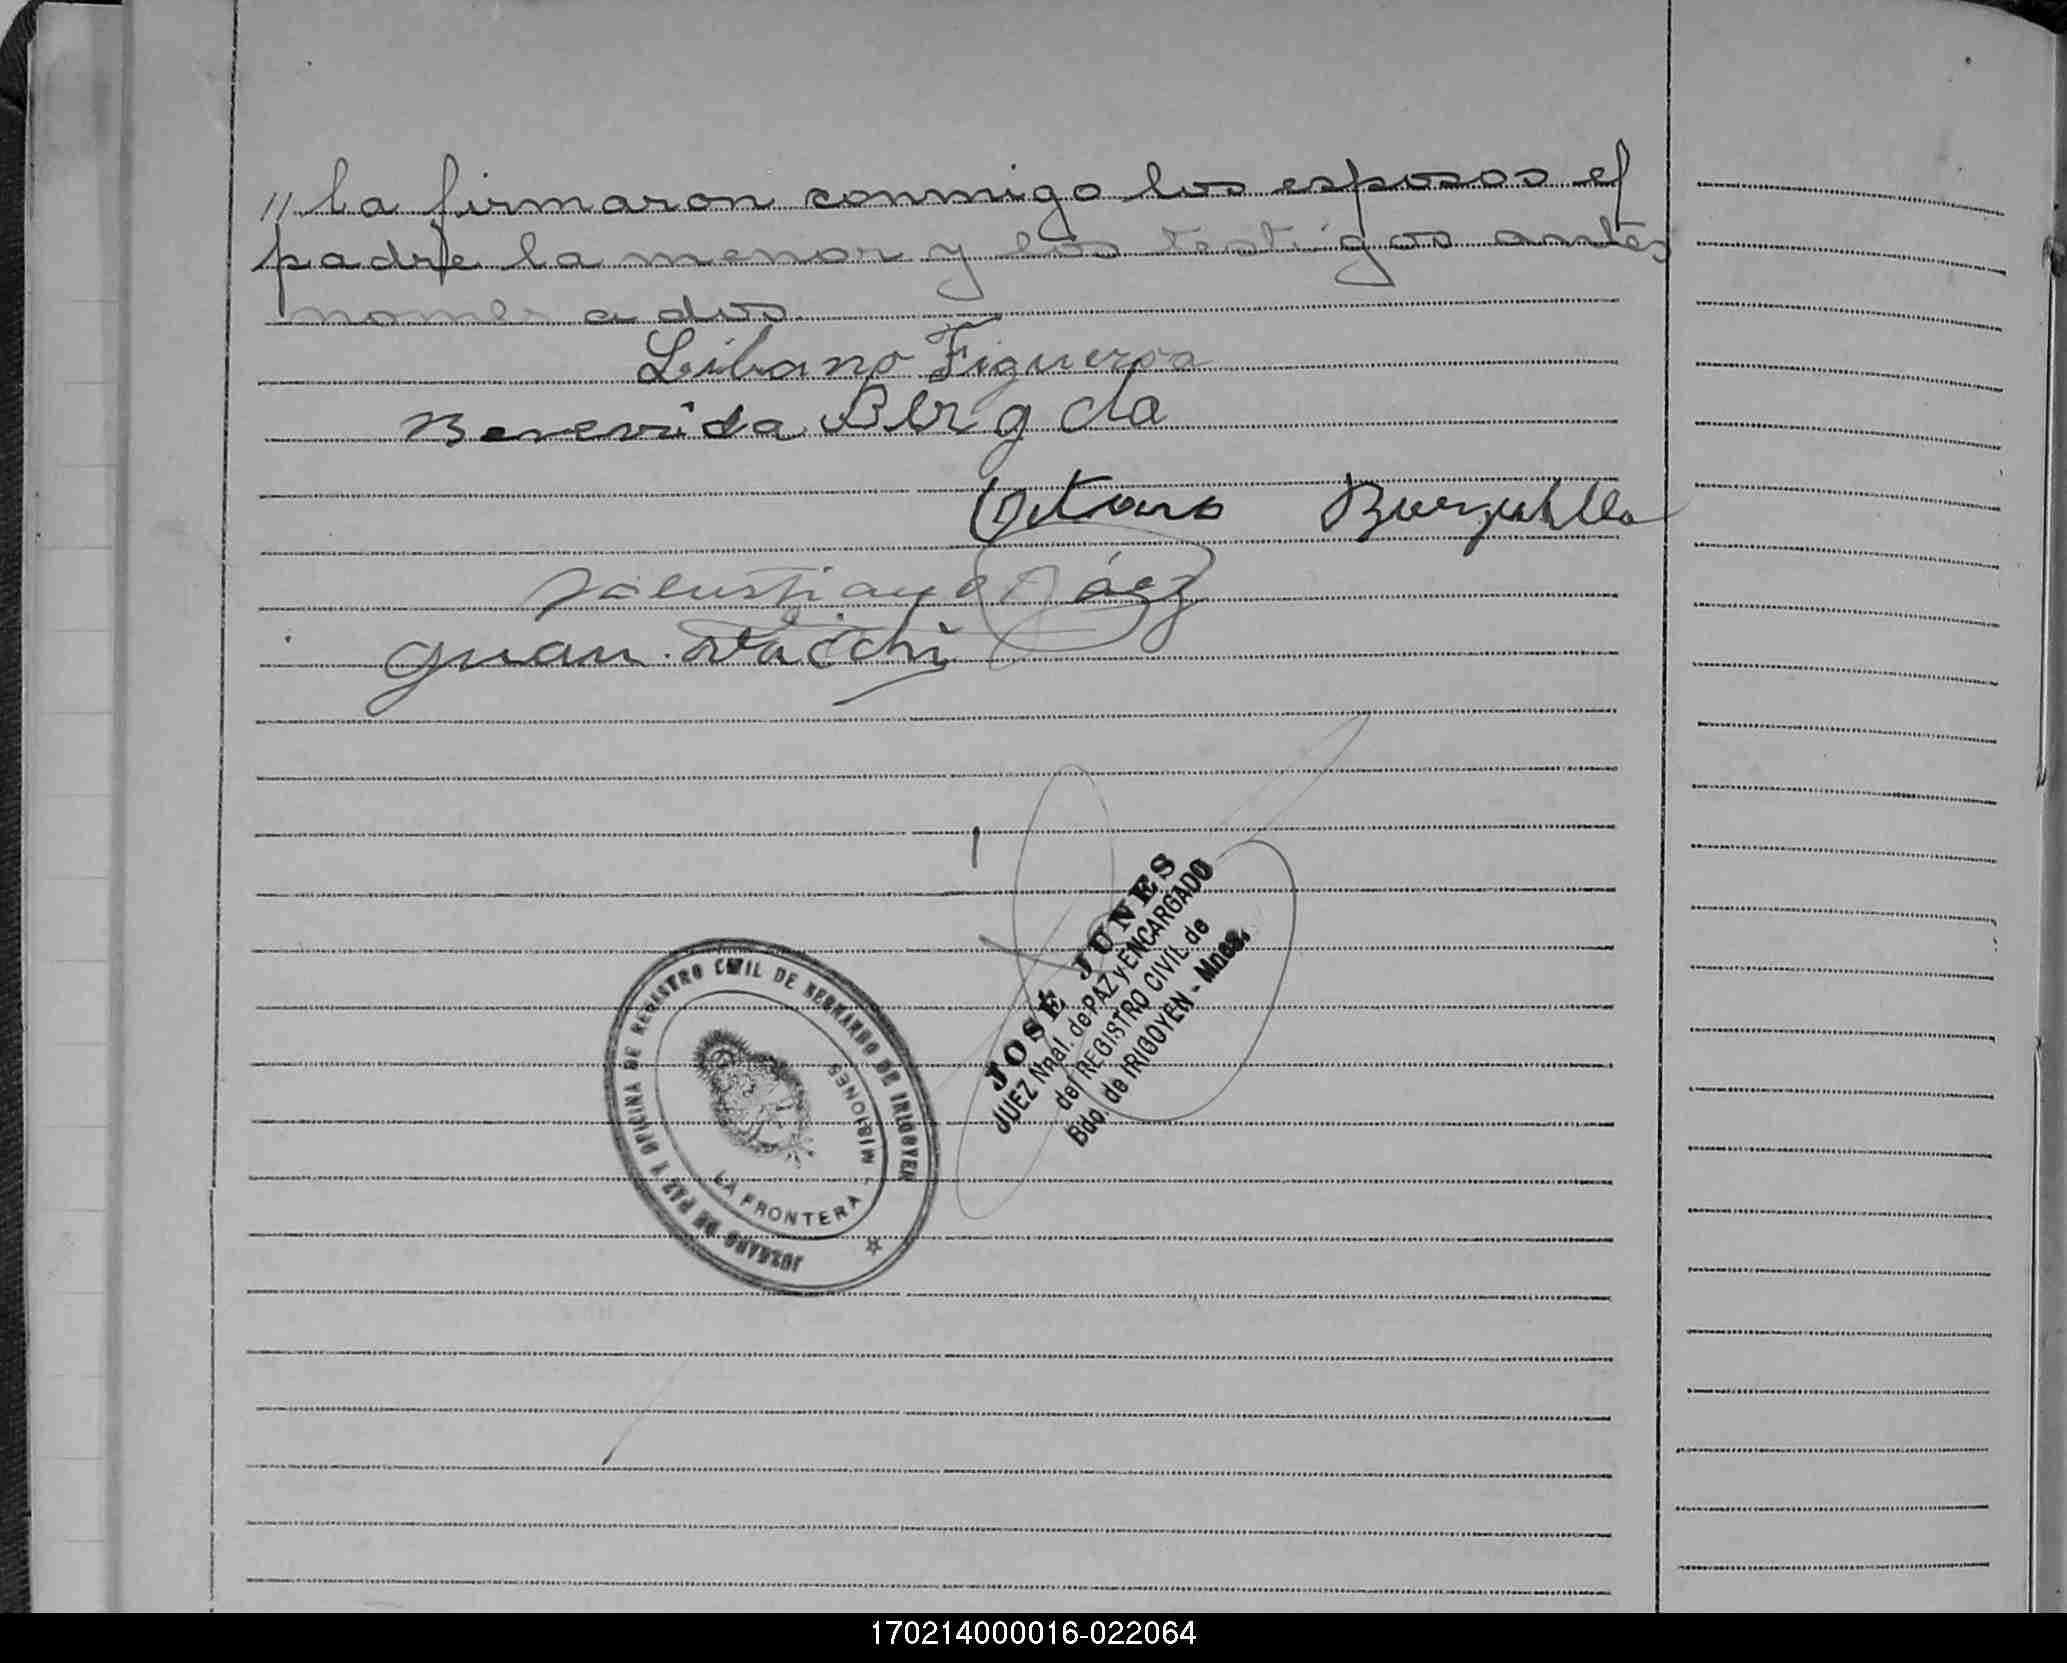 // la firmaron conmigo los esposos el
padre la menor y los testigos antes
nombrados.
Libano Figueroa
Benevida
Juan
JOSÉ JUNES
JUEZ Nnal. de PAZ y ENCARGADO
del REGISTRO CIVIL de
Bdo. de IRIGOYEN - Mnes.
JUZGADO DE PAZ Y OFICINA DE REGISTRO CIVIL DE BERNARDO DE IRIGOYEN
LA FRONTERA - MISIONES
170214000016-022064